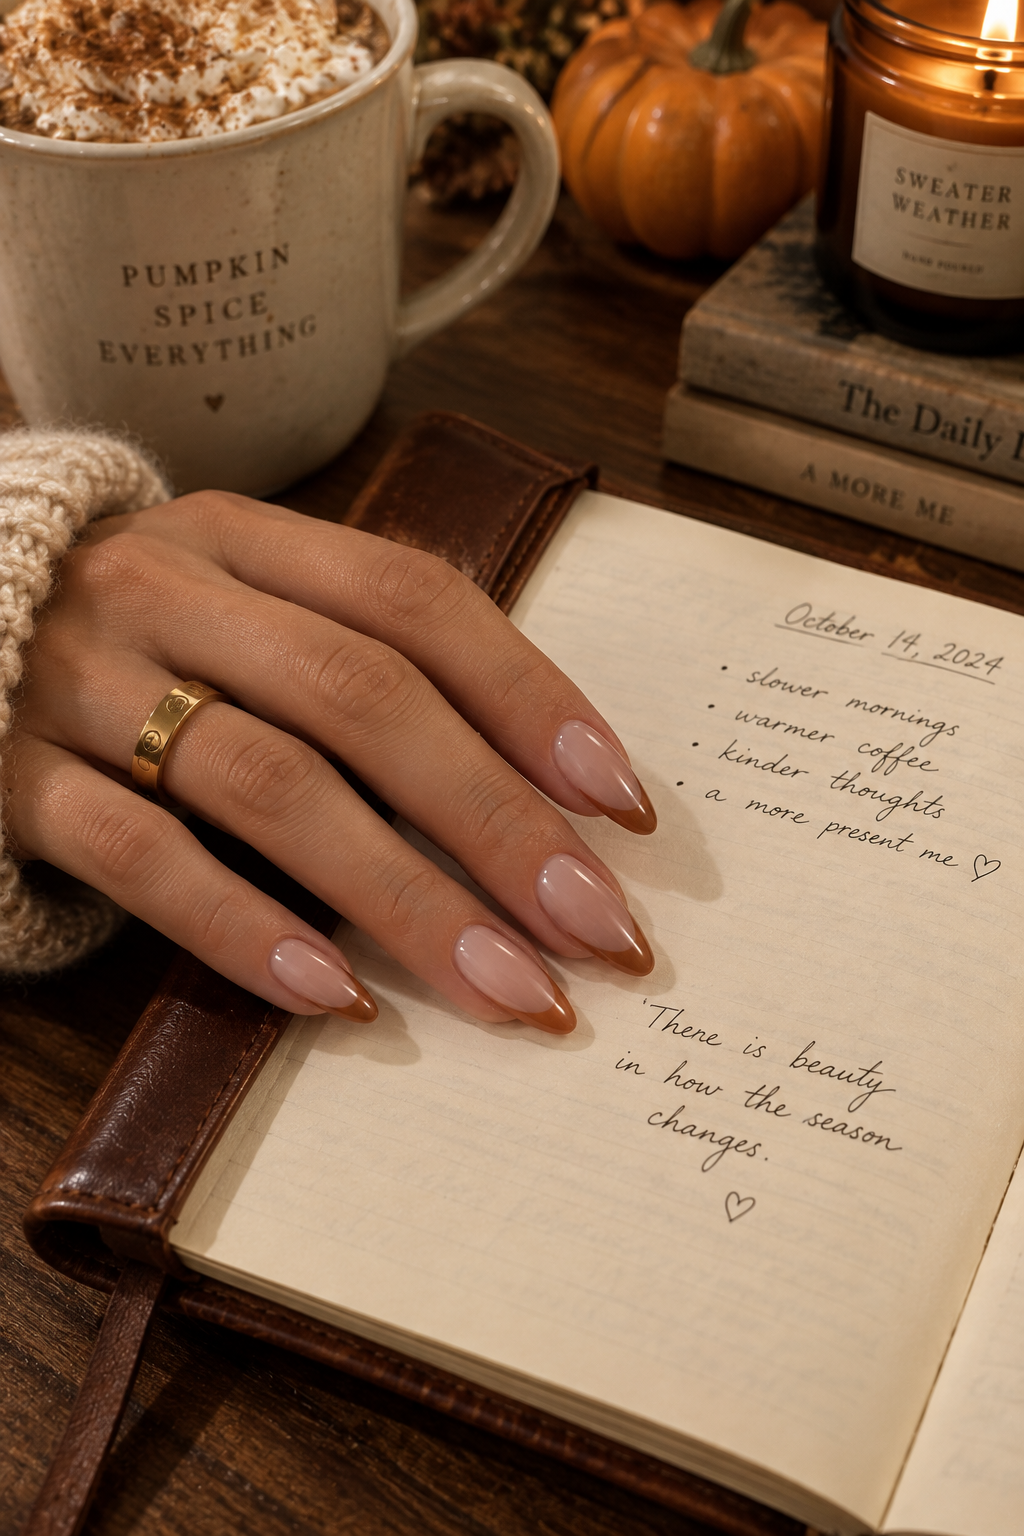 PUMPKIN
SPICE
EVERYTHING
SWEATER
WEATHER
HAND POURED
The Daily
A MORE ME
October 14, 2024
• slower mornings
• warmer coffee
• kinder thoughts
• a more present me ♡
'There is beauty
in how the season
changes.
♡